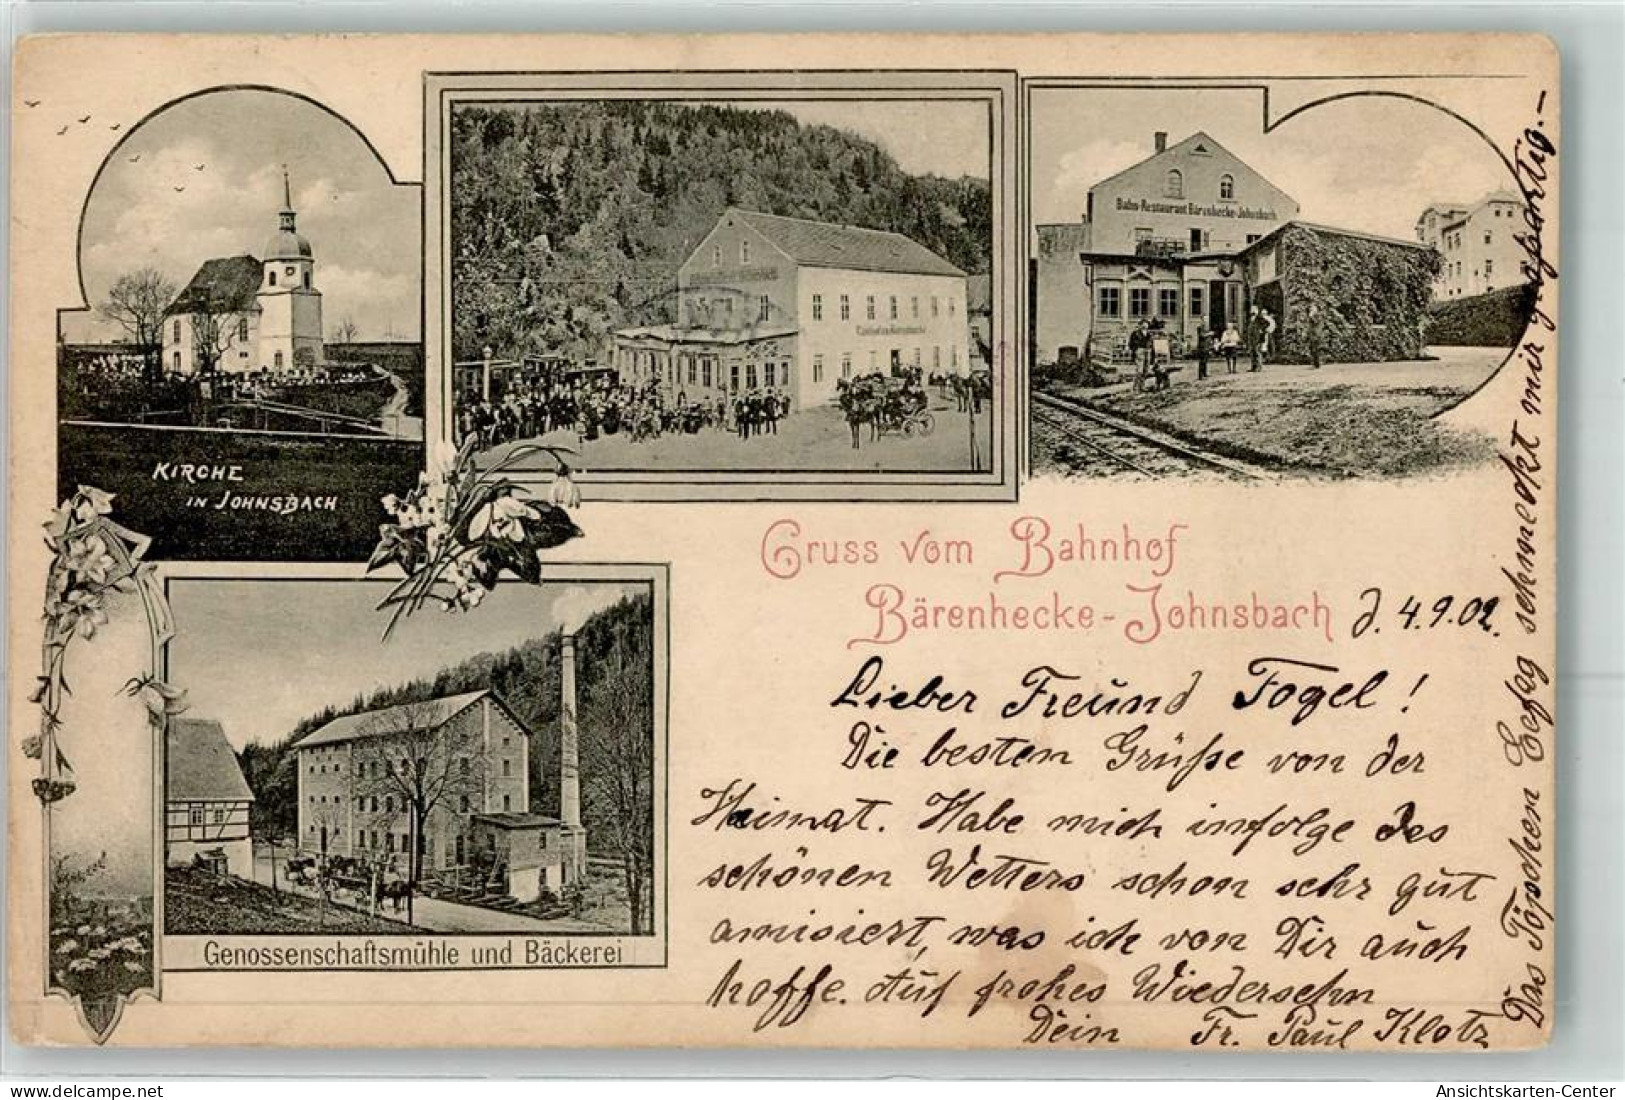 KIRCHE
IN JOHNSBACH
Bahn-Restaurant Bärenhecke-Johnsbach
Gruss vom Bahnhof
Bärenhecke-Johnsbach
d. 4.9.02.
Lieber Freund Fogel!
Die besten Grüße von der
Heimat. Habe mich infolge des
schönen Wetters schon sehr gut
amisiert, was ich von Dir auch
hoffe. Auf frohes Wiedersehn
Dein Fr. Paul Klotz
Das Töpschen schmeckt mir großartig.-
Genossenschaftsmühle und Bäckerei
https://www.delcampe.net
Ansichtskarten-Center